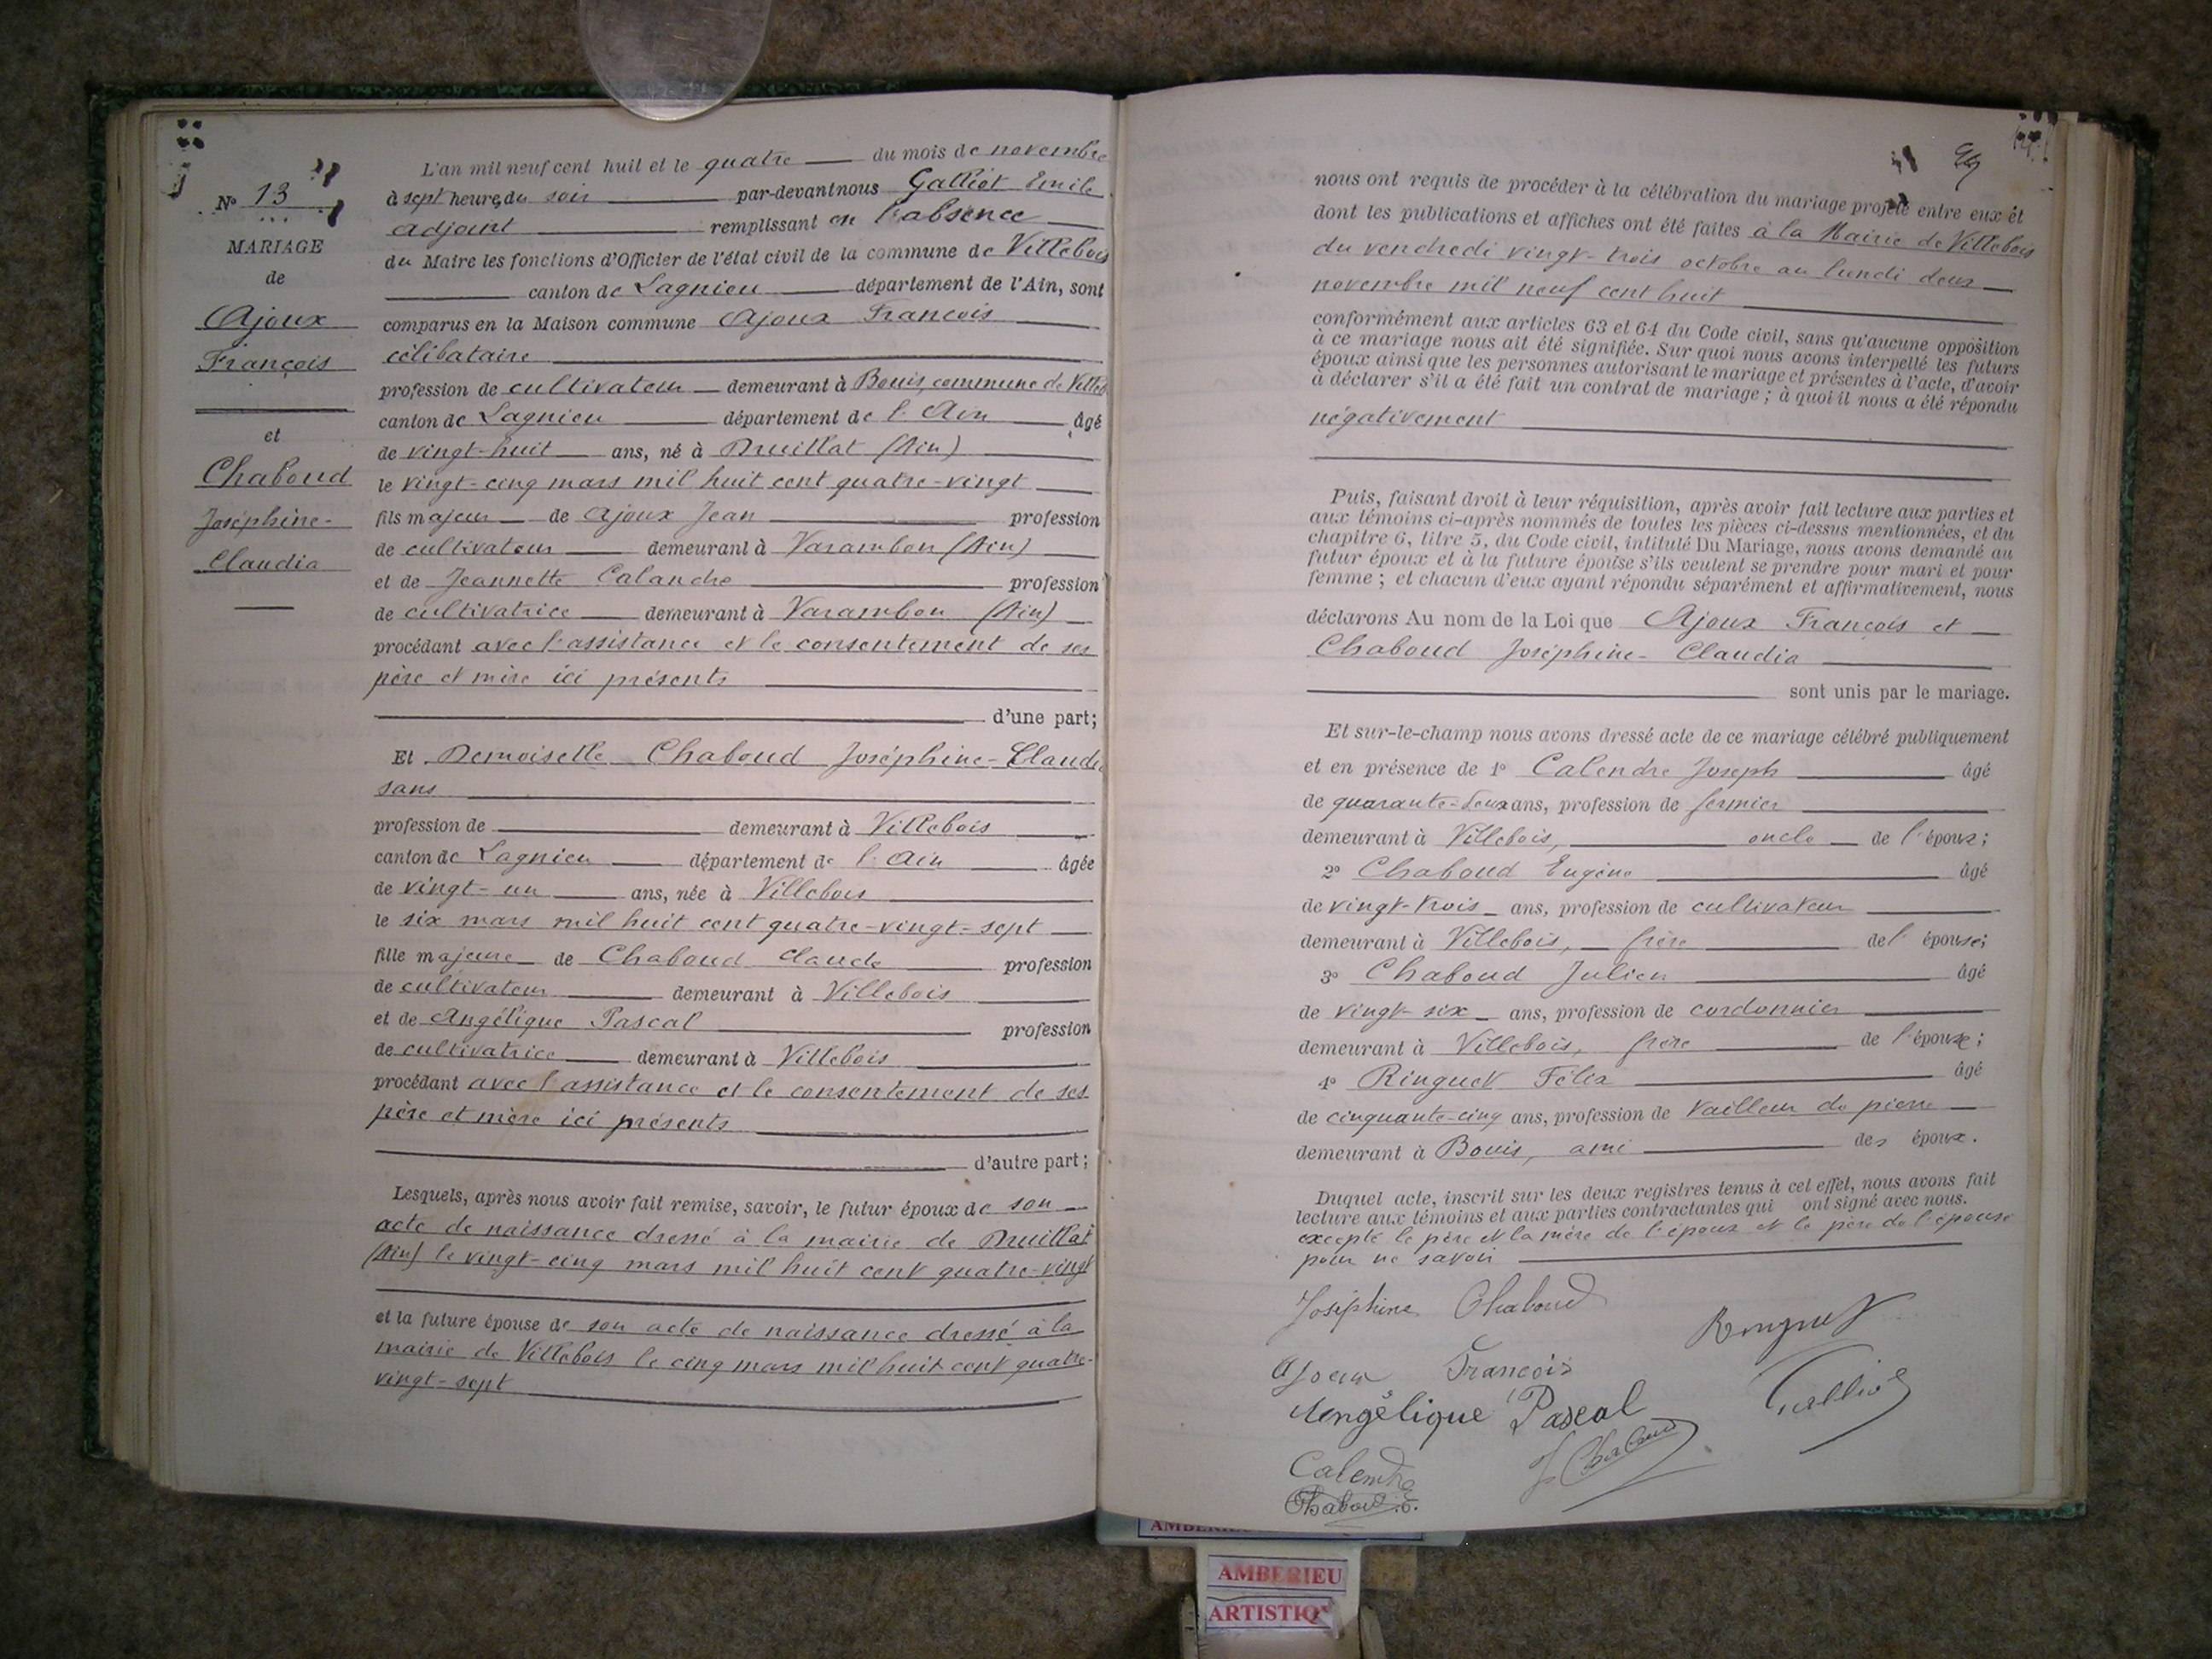 N° 13
MARIAGE
de
Ajoux
François
et
Chaboud
Joséphine-
Claudia
L'an mil neuf cent huit et le quatre du mois de novembre
à sept heures du soir par-devant nous Galliot Emile
adjoint remplissant en l'absence
du Maire les fonctions d'Officier de l'état civil de la commune de Villebois
canton de Lagnieu département de l'Ain, sont
comparus en la Maison commune Ajoux François
célibataire
profession de cultivateur demeurant à Bouis, commune de Villeb
canton de Lagnieu département de l'Ain âgé
de vingt-huit ans, né à Druillat (Ain)
le vingt-cinq mars mil huit cent quatre-vingt
fils majeur de Ajoux Jean profession
de cultivateur demeurant à Varambon (Ain)
et de Jeannette Calandre profession
de cultivatrice demeurant à Varambon (Ain)
procédant avec l'assistance et le consentement de ses
père et mère ici présents
d'une part;
Et Demoiselle Chaboud Joséphine-Claudia
sans
profession de demeurant à Villebois
canton de Lagnieu département de l'Ain âgée
de vingt-un ans, née à Villebois
le six mars mil huit cent quatre-vingt-sept
fille majeure de Chaboud Claude profession
de cultivateur demeurant à Villebois
et de Angélique Pascal profession
de cultivatrice demeurant à Villebois
procédant avec l'assistance et le consentement de ses
père et mère ici présents
d'autre part;
Lesquels, après nous avoir fait remise, savoir, le futur époux de son
acte de naissance dressé à la mairie de Druillat
(Ain) le vingt-cinq mars mil huit cent quatre-vingt
et la future épouse de son acte de naissance dressé à la
mairie de Villebois le cinq mars mil huit cent quatre-
vingt-sept
nous ont requis de procéder à la célébration du mariage projeté entre eux et
dont les publications et affiches ont été faites à la Mairie de Villebois
du vendredi vingt-trois octobre au lundi deux
novembre mil neuf cent huit
conformément aux articles 63 et 64 du Code civil, sans qu'aucune opposition
à ce mariage nous ait été signifiée. Sur quoi nous avons interpellé les futurs
époux ainsi que les personnes autorisant le mariage et présentes à l'acte, d'avoir
à déclarer s'il a été fait un contrat de mariage; à quoi il nous a été répondu
négativement
Puis, faisant droit à leur réquisition, après avoir fait lecture aux parties et
aux témoins ci-après nommés de toutes les pièces ci-dessus mentionnées, et du
chapitre 6, titre 5, du Code civil, intitulé Du Mariage, nous avons demandé au
futur époux et à la future épouse s'ils veulent se prendre pour mari et pour
femme; et chacun d'eux ayant répondu séparément et affirmativement, nous
déclarons Au nom de la Loi que Ajoux François et
Chaboud Joséphine-Claudia
sont unis par le mariage.
Et sur-le-champ nous avons dressé acte de ce mariage célébré publiquement
et en présence de 1° Calendre Joseph âgé
de quarante-deux ans, profession de fermier
demeurant à Villebois, oncle de l'époux;
2° Chaboud Eugène âgé
de vingt-trois ans, profession de cultivateur
demeurant à Villebois, frère de l'épouse;
3° Chaboud Julien âgé
de vingt-six ans, profession de cordonnier
demeurant à Villebois, frère de l'épouse;
4° Ringuet Félix âgé
de cinquante-cinq ans, profession de tailleur de pierre
demeurant à Bouis, ami des époux.
Duquel acte, inscrit sur les deux registres tenus à cet effet, nous avons fait
lecture aux témoins et aux parties contractantes qui ont signé avec nous.
excepté le père et la mère de l'époux et le père de l'épouse
pour ne savoir
Joséphine Chaboud
Ringuet
Ajoux François
Angélique Pascal
Galliot
J Chaboud
Calendre
Chaboud E.
AMBERIEU
ARTISTIQ